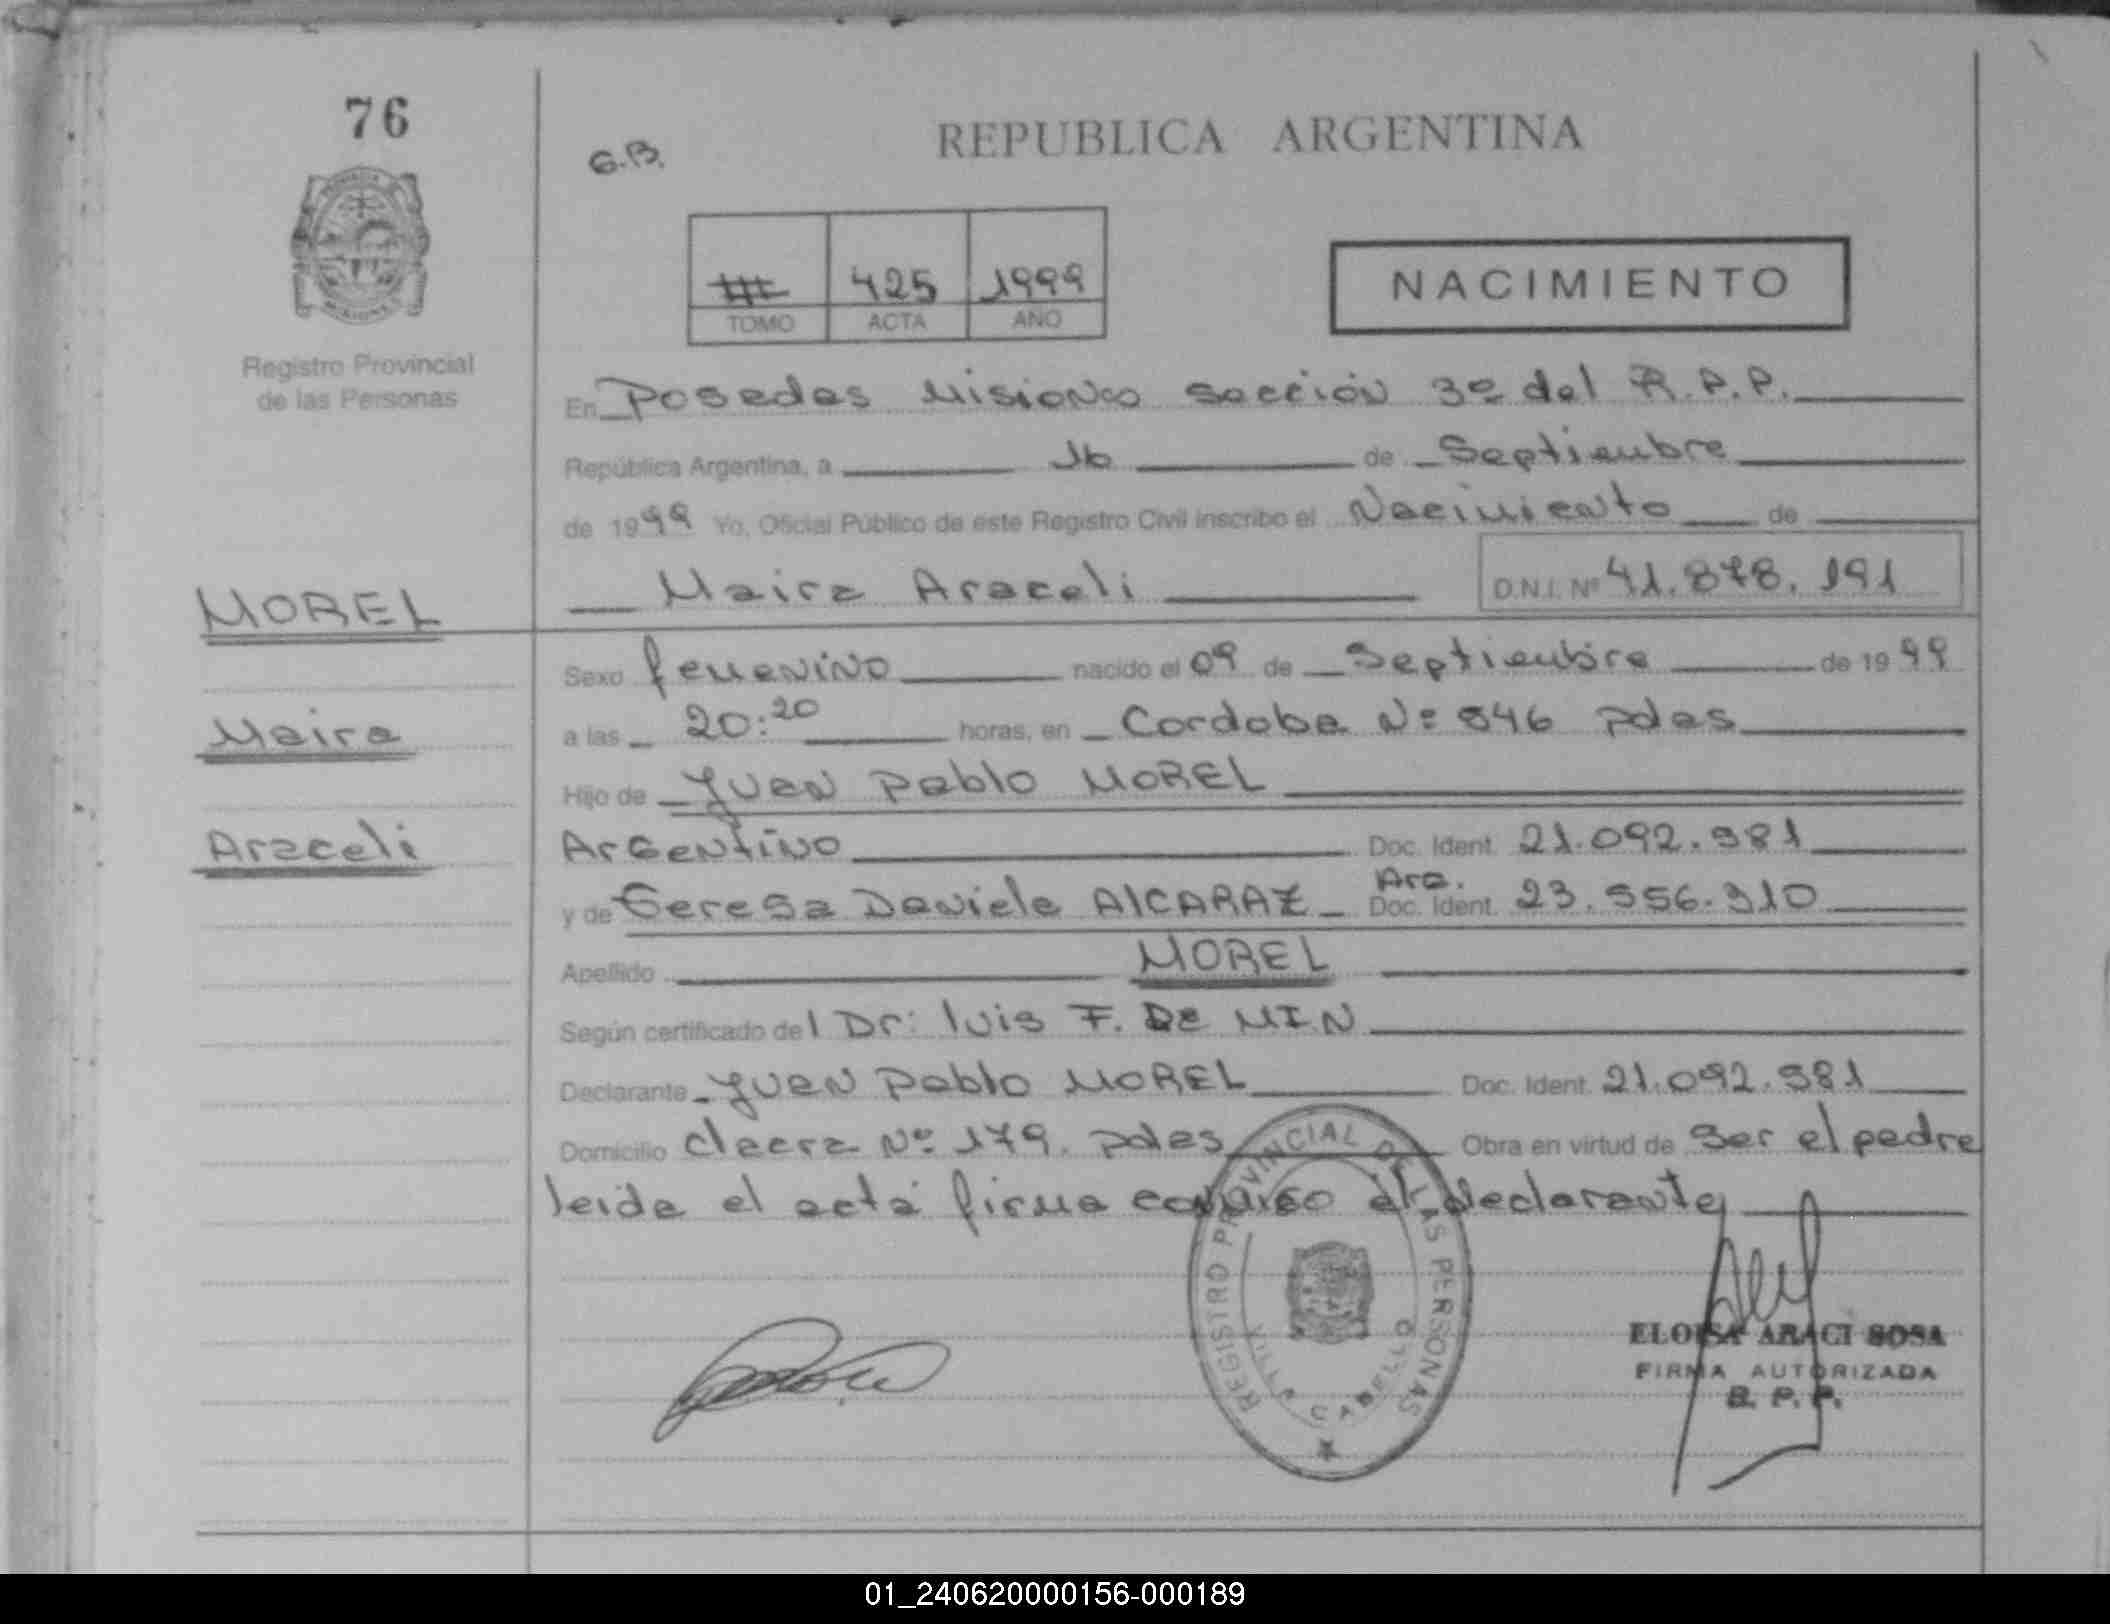 76
G.B.
REPUBLICA ARGENTINA
425 1999
TOMO ACTA AÑO
NACIMIENTO
Registro Provincial
de las Personas
En Posadas Misiones sección 3º del R.P.P.
República Argentina, a 16 de Septiembre
de 1999 Yo, Oficial Público de este Registro Civil inscribo el Nacimiento de
Maira Araceli D.N.I. Nº 41.878.191
MOREL
Sexo femenino nacido el 09 de Septiembre de 1999
Maira
a las 20:20 horas, en Cordoba Nº 846 pdas
Hijo de Juan Pablo MOREL
Araceli
Argentino Doc. Ident. 21.092.981
Arg.
y de Teresa Daniela AlCARAZ Doc. Ident. 23.556.310
Apellido MOREL
Según certificado del Dr: luis F. De MIN
Declarante Juan Pablo MOREL Doc. Ident. 21.092.981
Domicilio Nº 179. pdas Obra en virtud de ser el padre
leida el acta firma conmigo el declarante
REGISTRO PROVINCIAL DE LAS PERSONAS
VILLA CABELLO
ELOISA ARACI SOSA
FIRMA AUTORIZADA
R. P. P.
01_240620000156-000189